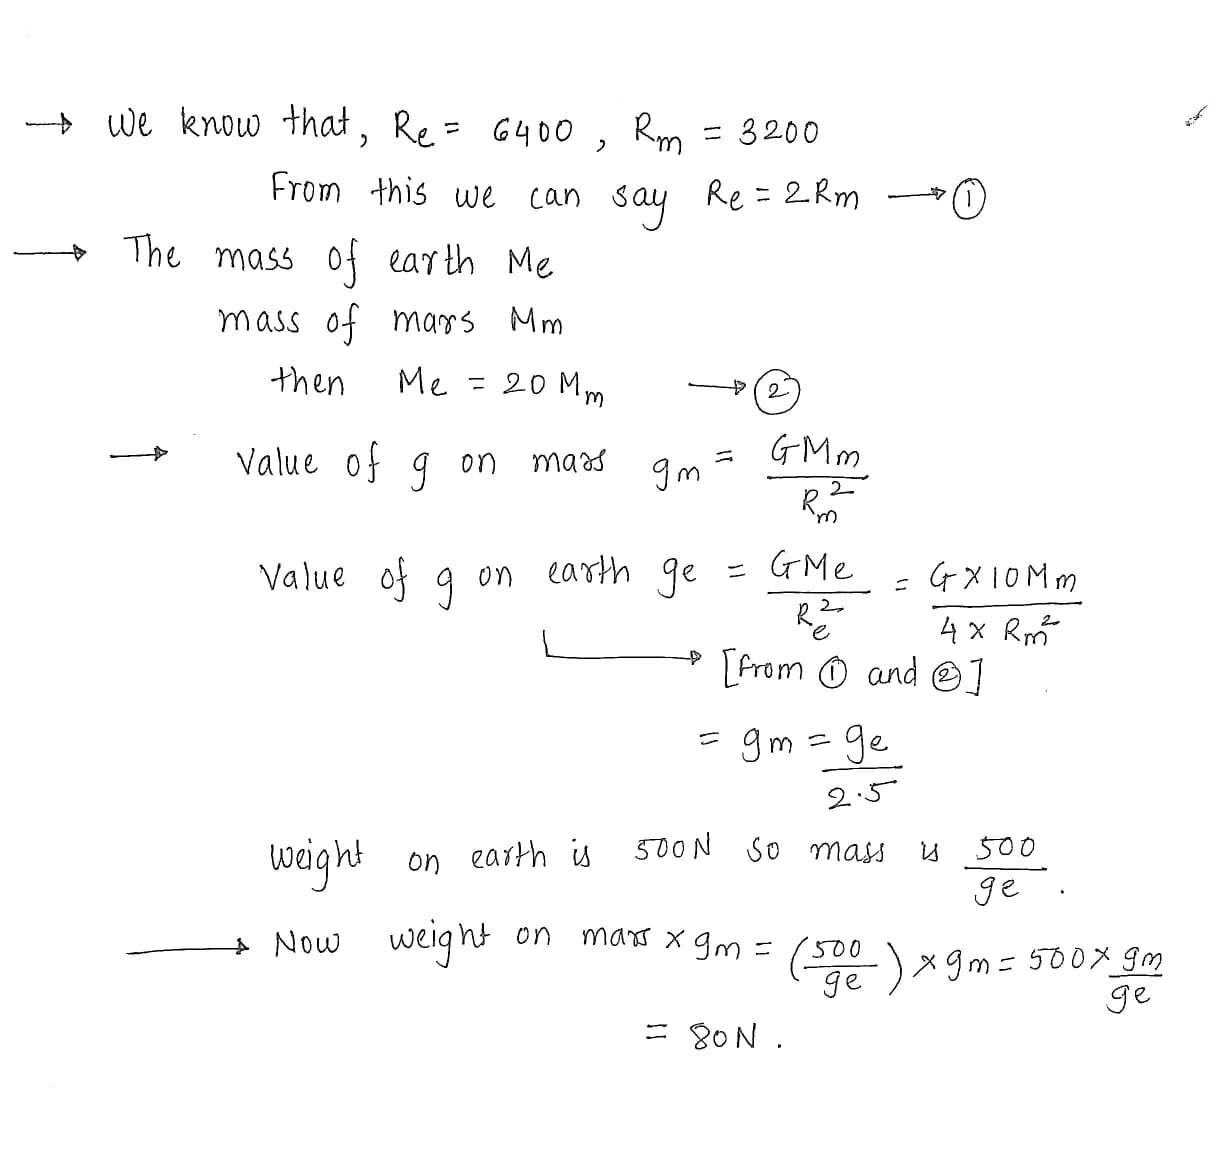 → We know that, Re = 6400 , Rm = 3200
From this we can say Re = 2Rm → ①
→ The mass of earth Me
mass of mars Mm
then Me = 20 Mm → ②
→ Value of g on mars gm = GMm / Rm²
Value of g on earth ge = GMe / Re² = G×10Mm / 4 × Rm²
→ [From ① and ②]
= gm = ge / 2.5
weight on earth is 500N so mass is 500 / ge .
→ Now weight on mars × gm = (500 / ge) × gm = 500 × gm / ge
= 80N .